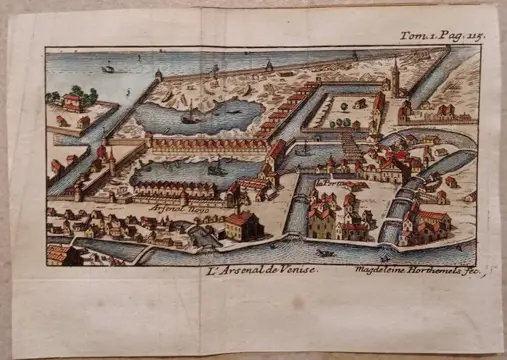 Tom. 1. Pag. 115.
la Porta
Arsenal Novo
L'Arsenal de Venise.
Magdeleine Horthemels fec.